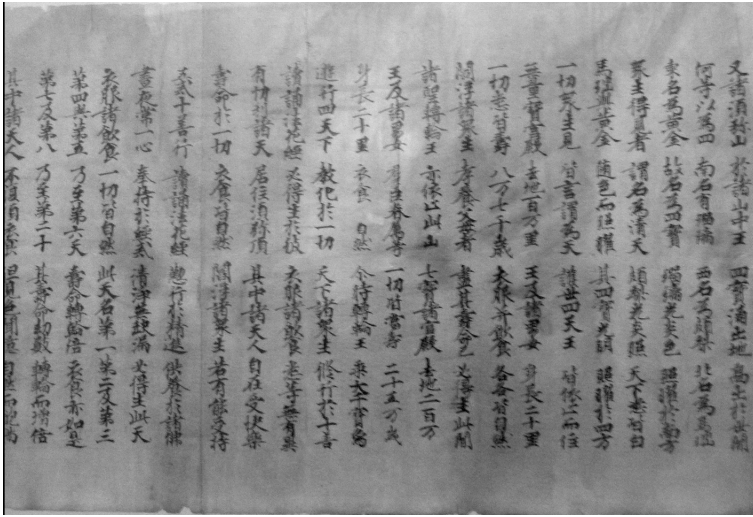 又諸須弥山 於諸山中王 四寳涌出地 高出於世間
何等以為四 南名有瑠璃 西名為頗梨 北名為馬瑙
東名為黄金 故名為四寳 瑠璃光炎色 照耀於南方
衆生得見者 謂名為清天 頗梨光炎照 天下悉皆白
馬瑙與黄金 随色而照耀 其四寳光明 照耀於四方
一切衆生見 皆言謂為天 護世四天王 皆依止而住
無量寳宮殿 去地百万里 王及諸男女 身長二十里
一切悉皆壽 八万七千歳 衣服等飲食 各各皆自然
閻浮諸衆生 孝養父母者 盡其壽命已 必得生此間
諸聖轉輪王 亦依止此山 七寳諸宮殿 去地二百万
王及諸男女 君臣眷属等 一切皆當壽 二十五万歳
身長二十里 衣食 自然 金持轉輪王 乘六千寳馬
遊行四天下 教化於一切 天下諸衆生 修行於十善
讀誦法花經 必得生於彼 衣服諸飲食 悉等無有異
有切利諸天 居住須弥頂 其中諸天人 自在受快樂
壽命於一切 衣食皆自然 閻浮諸衆生 若有能受持
五戒十善行 讀誦法花經 懃行於精進 供養於諸佛
晝夜常一心 奉持於經戒 清浄無缺漏 必得生此天
衣服諸飲食 一切皆自然 此天名第一 第二及第三
第四與第五 乃至第六天 壽命轉輪倍 衣食亦如是
第七及第八 乃至第二十 其壽命劫數 轉輪而增倍
其中諸天人 不復有衣食